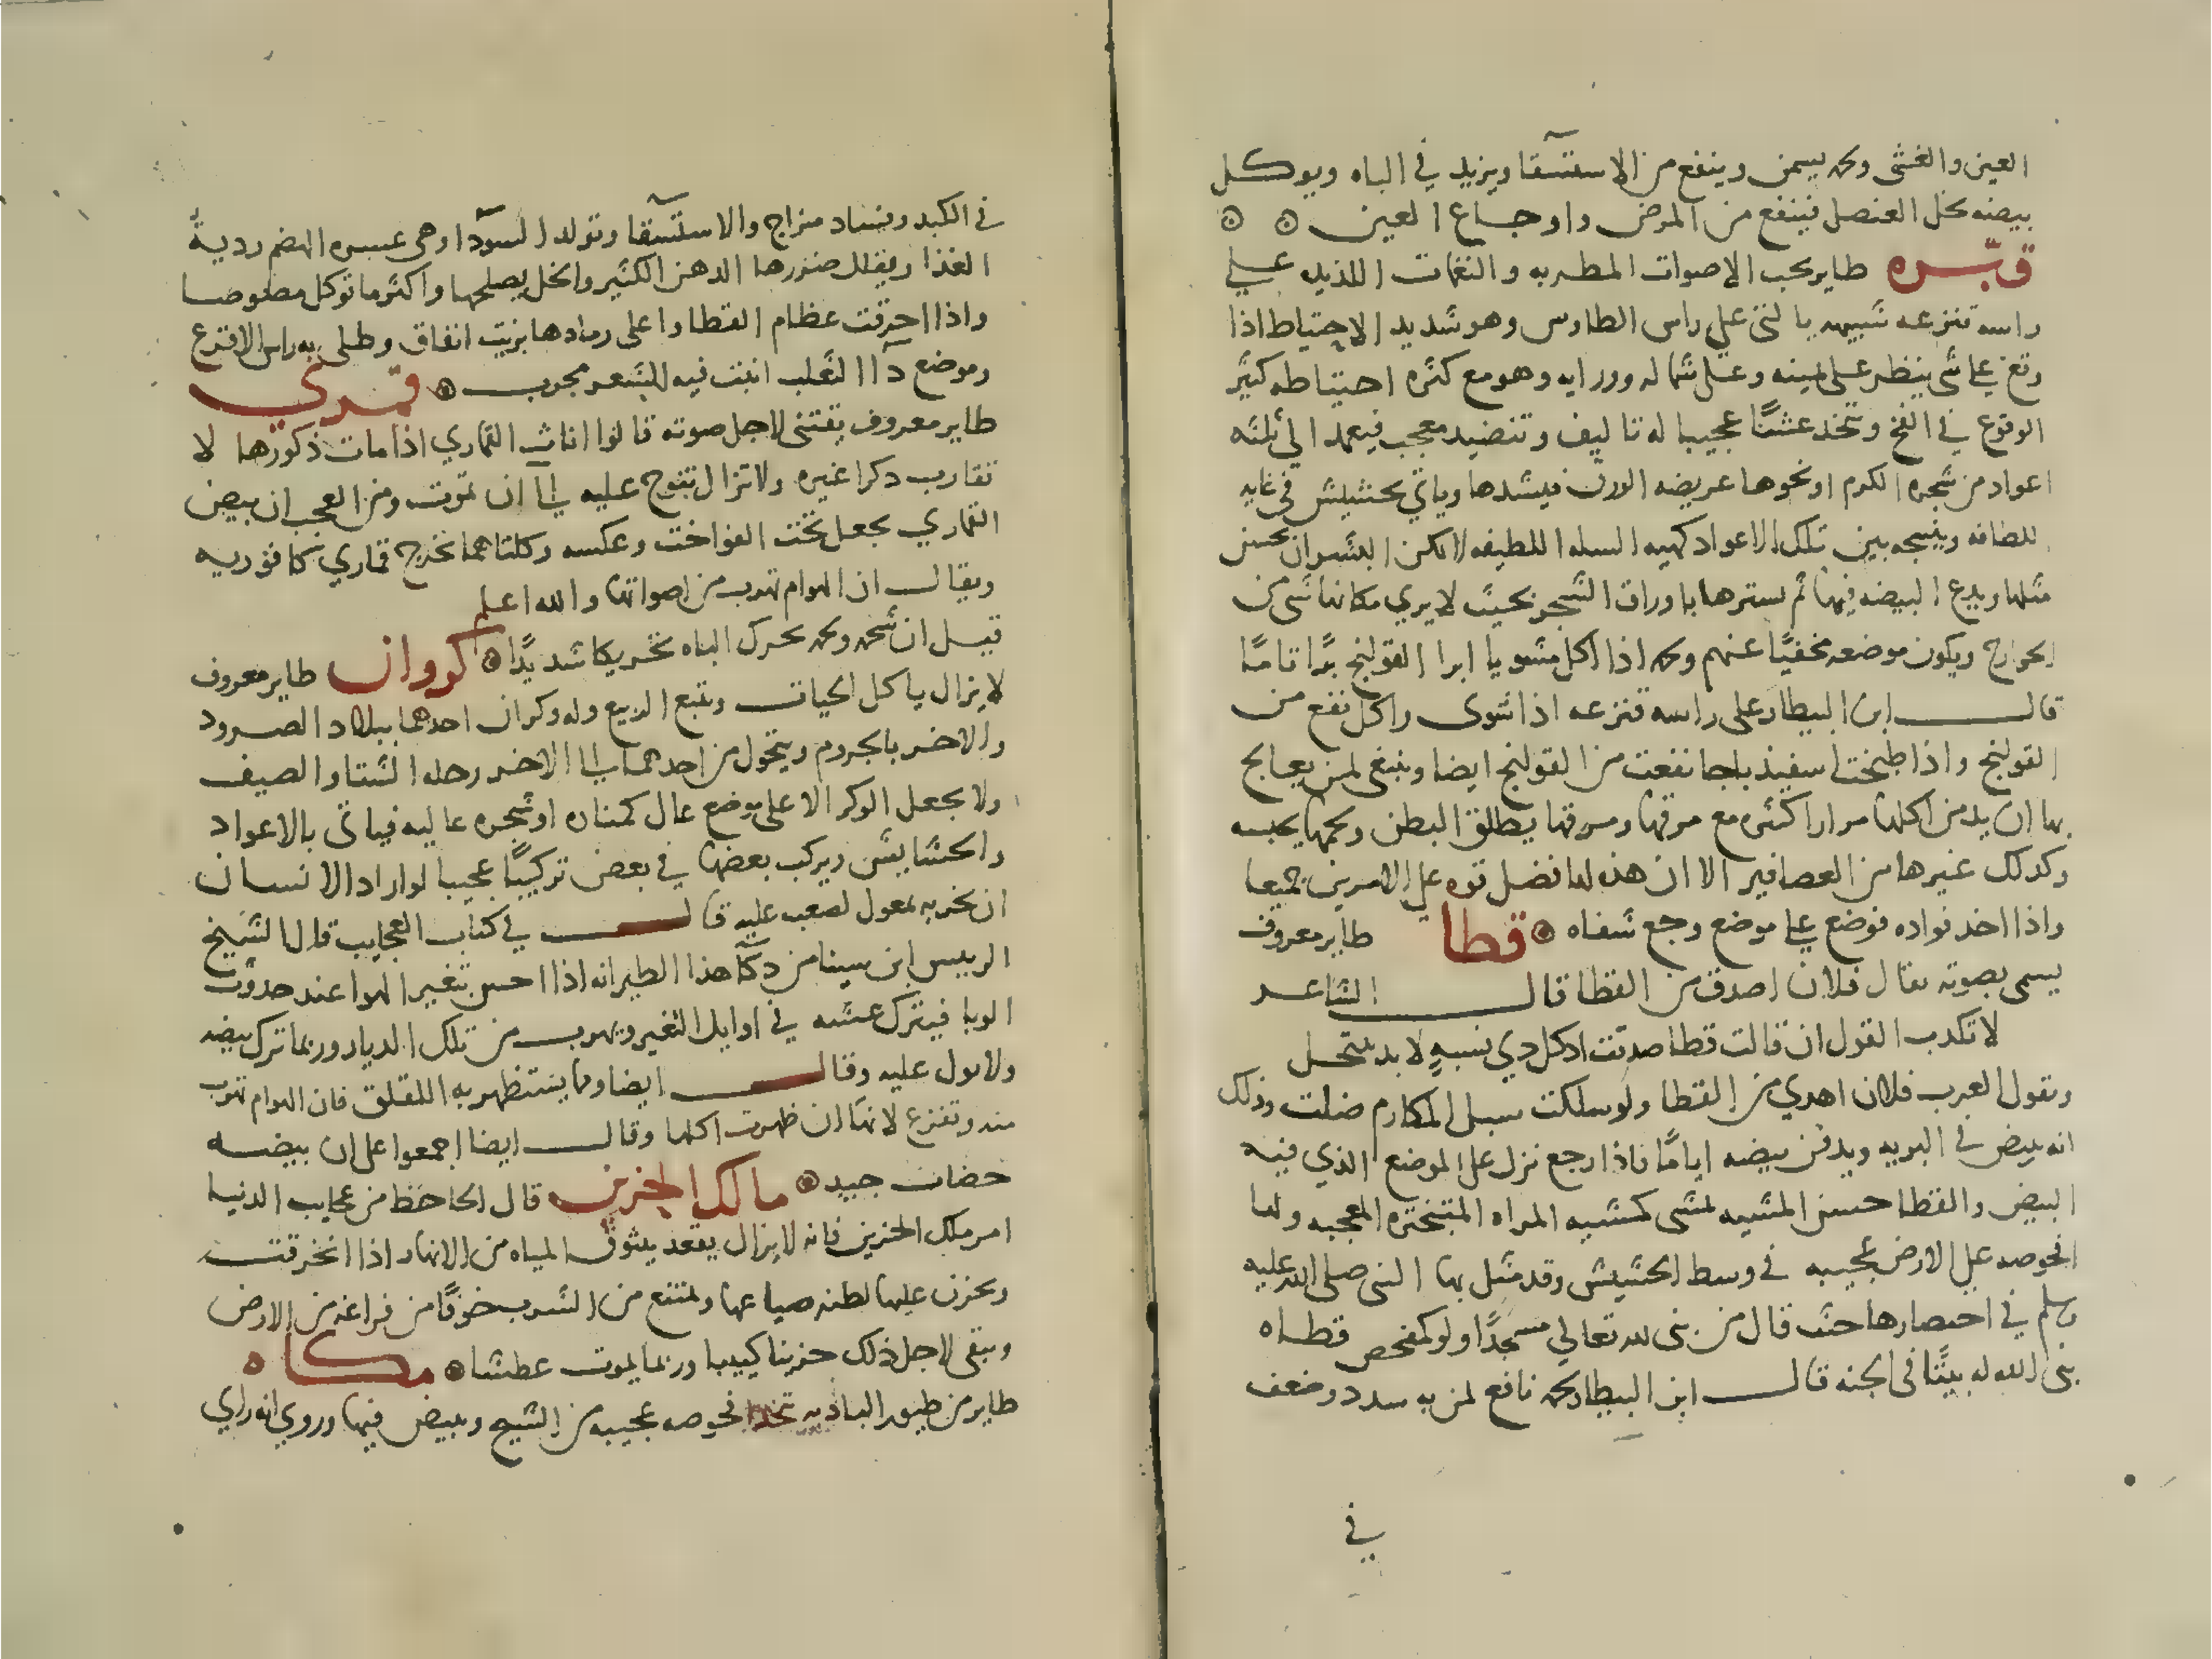 العين والغشى ولحمه يسمن وينفع من الاستسقآ ويزيد في الباه ويوكل
بيضه بخل العنصل فينفع من المرض واوجاع العين
قبّره طاير يحب الاصوات المطربه والنغمات اللذيذه علي
راسه قنزعه شبيهه بالتى علي راس الطاوس وهو شديد الاحتياط اذا
وقع على شى ينظر على يمينه وعلى شماله وورايه وهو مع كثره احتياطه كثير
الوقوع في الفخ ويتخذ عشًا عجيبا له تاليف وتنضيد معجب فيعمد الي ثلثه
اعواد من شجره الكرم او نحوها عريضه الورق فيشدها وياتي بحشيش في غايه
اللطافه وينسجه بين تلك الاعواد كهيه السله اللطيفه لا يمكن البشر ان يحسن
مثلها ويدع البيضه فيها ثم يسترها باوراق الشجر بحيث لا يري مكانها شى من
الجوارح ويكون موضعه مخفيًا عنهم ولحمه اذا اكل مشويا ابرا القولنج برًا تامًا
قال ابن البيطار على راسه قنزعه اذا شوى واكل نفع من
القولنج واذا طبخت اسفيذباجا نفعت من القولنج ايضا وينبغى لمن يعالج
بها ان يدمن اكلها مرارا كثيره مع مرقها ومرقها يطلق البطن ولحمها يحبسه
وكذلك غيرها من العصافير الا ان هذه لها فضل قوه على الامرين جميعا
واذا اخذ فواده فوضع على موضع وجع شفاه قطا طاير معروف
يسمى بصوته يقال فلان اصدق من القطا قال الشاعر
لا تكذب القول ان قالت قطا صدقت اذ كل ذي نسبهٍ لا بد ينتحل
وتقول العرب فلان اهدي من القطا ولو سلكت سبل المكارم ضلت وذلك
انه يبيض في البريه ويدفن بيضه ايامًا فاذا رجع نزل على الموضع الذي فيه
البيض والقطا حسن المشيه لمشى كمشيه المراه المتبختره المعجبه ولها
افحوصه على الارض عجيبه في وسط الحشيش وقد مثل بها النبى صلى الله عليه
وسلم في اختصارها حيث قال من بنى لله تعالي مسجدًا ولو كمفحص قطاه
بنى الله له بيتًا فى الجنه قال ابن البيطار لحمه نافع لمن به سدد وضعف
في
في الكبد وفساد مزاج والاستسقآ وتولد السودآ وهى عسره الهضم رديهً
الغذا ويقلل ضررها الدهن الكثير والخل يصلحها واكثر ما توكل مصلوصا
واذا احرقت عظام القطا واغلى رمادها بزيت انفاق وطلى به راس الاقرع
وموضع دآ الثعلب انبت فيه الشعر مجرب قمري
طاير معروف يقتنى لاجل صوته قالوا اناث القماري اذا مات ذكورها لا
تقارب ذكرا غيره ولا تزال تنوح عليه الي ان تموت ومن العجب ان بيض
القماري يجعل تحت الفواخت وعكسه وكلتاهما تخرج قماري كافوريه
ويقال ان الهوام تهرب من اصواتها والله اعلم
قيل ان شحمه ولحمه يحرك الباه تحريكا شديدًا كروان طاير معروف
لا يزال ياكل الحيات ويتبع الربيع وله وكران احدهما ببلاد الصرود
والاخر بالجروم ويتحول من احدهما الي الاخر رحله الشتا والصيف
ولا يجعل الوكر الا على موضع عال كمناره او شجره عاليه فياتى بالاعواد
والحشايش ويركب بعضها في بعض تركيبًا عجيبا لو اراد الانسان
ان يخربه بمعول لصعب عليه قال في كتاب العجايب قال الشيخ
الرييس ابن سينا من ذكآ هذا الطير انه اذا احس بتغير الهوا عند حدوث
الوبا فيترك عشه في اوايل التغير ويهرب من تلك الديار وربما ترك بيضه
ولا يول عليه وقال ايضا ومما يستظهر به اللقلق فان الهوام تهرب
منه وتفزع لانها ان ظهرت اكلها وقال ايضا اجمعوا على ان بيضه
خضاب جيد مالك الحزين قال الجاحظ من عجايب الدنيا
امر ملك الحزين فانه لا يزال يقعد ببثوق المياه من الانهار اذا انخرقت
ويحزن عليها لظنه ضياعها ويمتنع من الشرب خوفًا من فراغه من الارض
ويبقى لاجل ذلك حزينا كييبا وربما يموت عطشا مكاه
طاير من طيور الباديه تتخذ افحوصه عجيبه من الشيح ويبيض فيها وروي انه راي